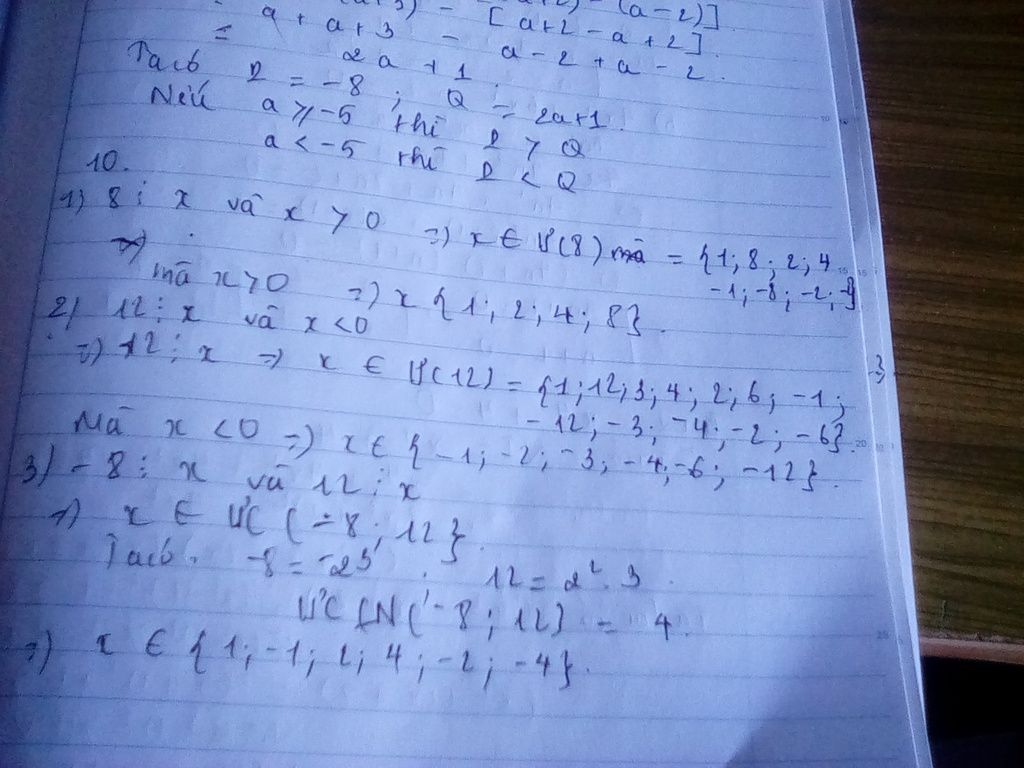 a+3) - [ a+2) - (a-2)]
= a + a + 3 - [a+2-a+2].
2a + 1 - a - 2 + a - 2.
Ta có P = -8 ; Q = 2a+1.
Nếu a ≥ -5 thì P > Q
a < -5 thì P < Q
10.
1) 8 ⋮ x và x > 0 => x ∈ Ư(8) = {1; 8; 2; 4
-1; -8; -2; -4}
mà x>0 => x {1; 2; 4; 8}.
2) 12 ⋮ x và x <0
=> 12 ⋮ x => x ∈ Ư(12) = {1; 12; 3; 4; 2; 6; -1;
-12; -3; -4; -2; -6}.
Mà x <0 => x ∈ {-1; -2; -3; -4; -6; -12}.
3) -8 ⋮ x và 12 ⋮ x
=> x ∈ ƯC (-8; 12}.
Ta có. -8 = -2³ . 12 = 2². 3.
ƯCLN(-8; 12) = 4.
=> x ∈ {1; -1; 2; 4; -2; -4}.